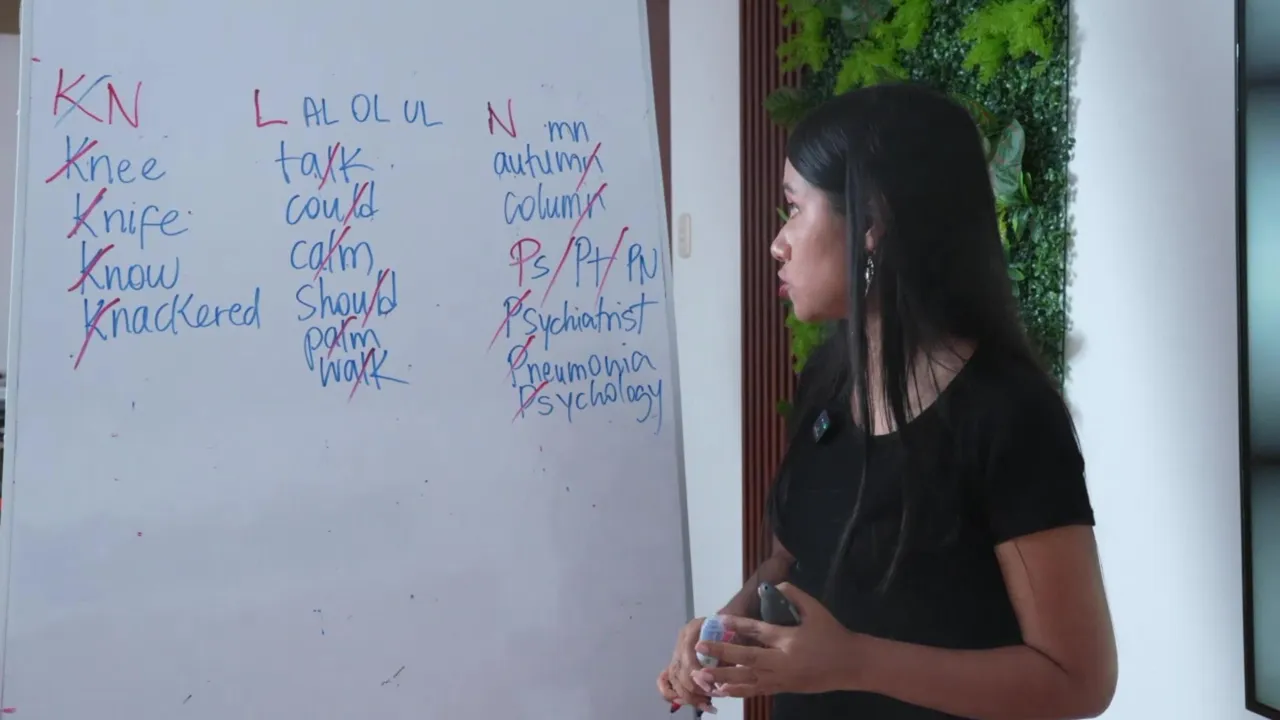 KN
Knee
Knife
Know
Knackered
L AL OL UL
talk
could
calm
should
palm
walk
N mn
autumn
column
Ps/Pt/PN
Psychiatrist
Pneumonia
Psychology